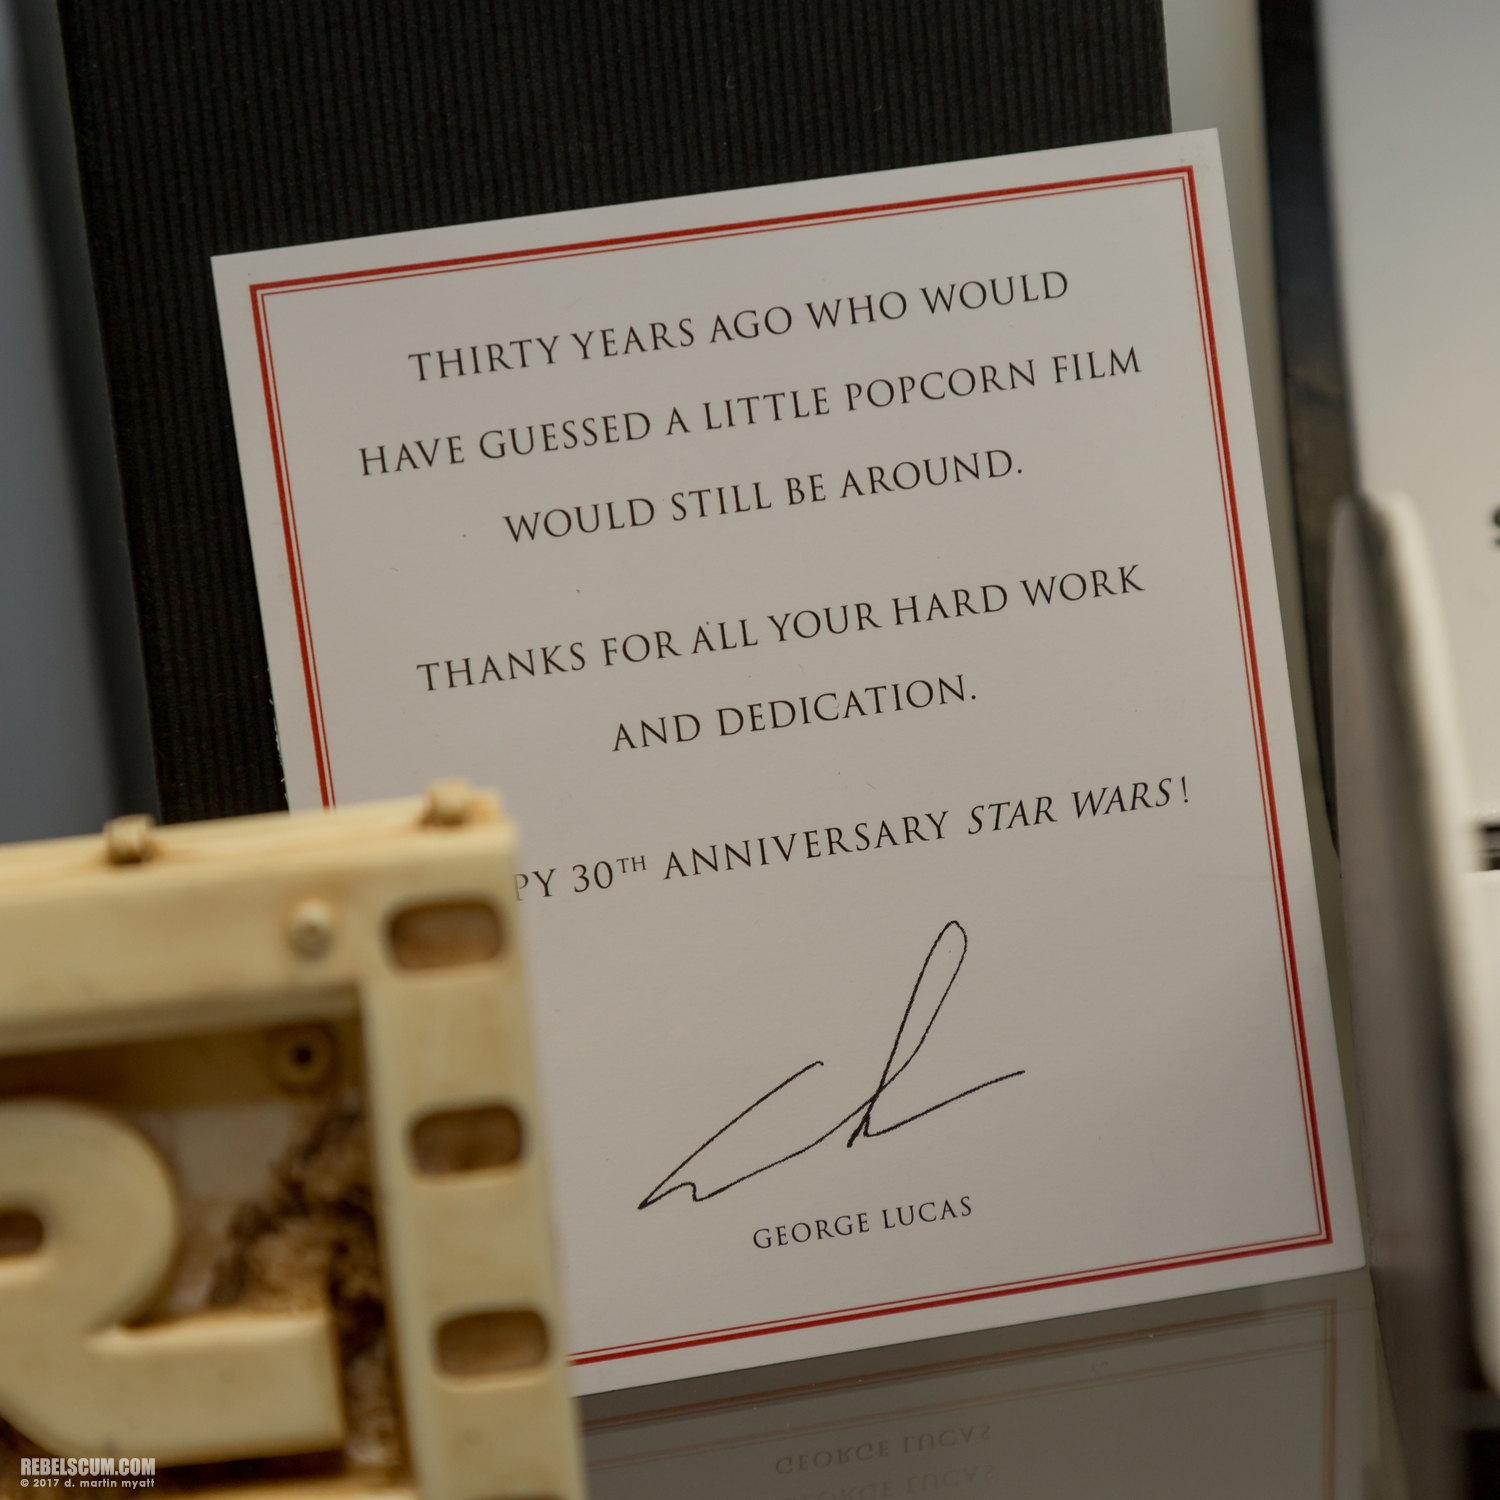 THIRTY YEARS AGO WHO WOULD
HAVE GUESSED A LITTLE POPCORN FILM
WOULD STILL BE AROUND.
THANKS FOR ALL YOUR HARD WORK
AND DEDICATION.
PY 30TH ANNIVERSARY STAR WARS!
GEORGE LUCAS
GEORGE LUCAS
REBELSCUM.COM
© 2017 d. martin myatt